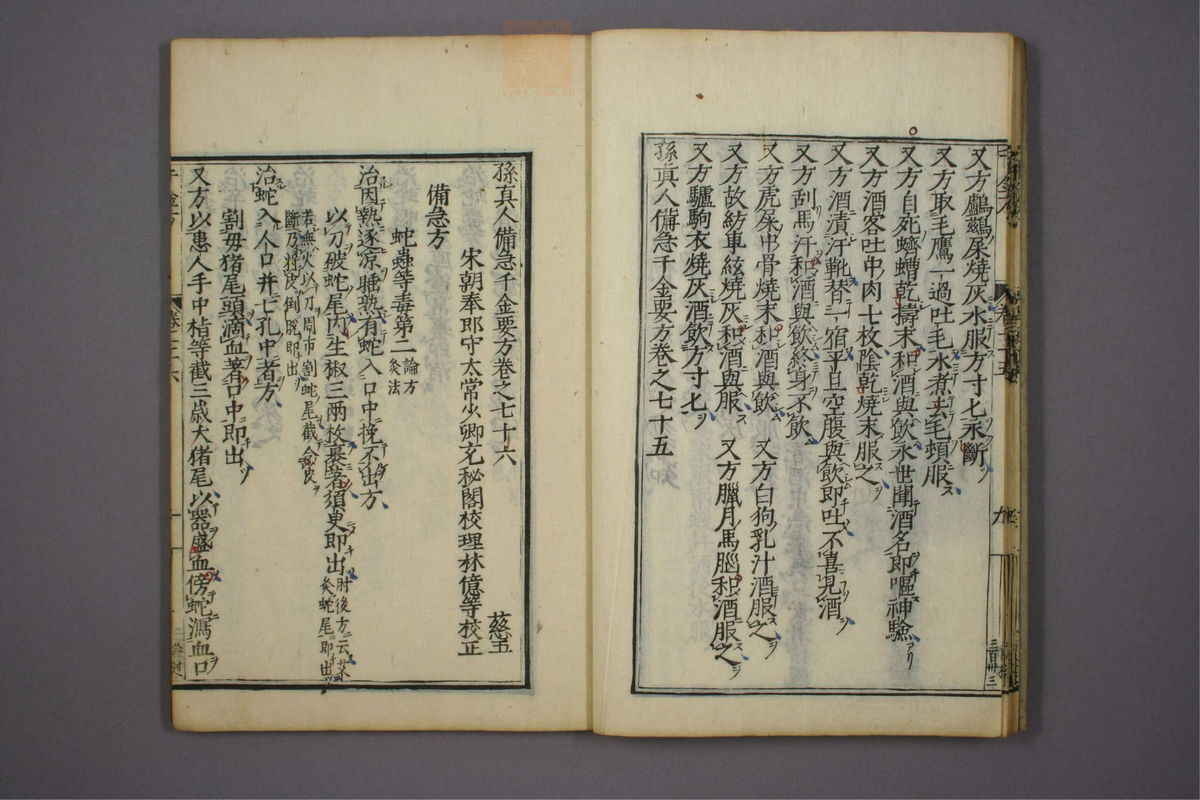 又方鸕鷀屎燒灰水服方寸匕永斷
又方取毛鷹一過吐毛水煮去毛頓服
又方自死蠐螬乾擣末和酒與飲永世聞酒名即嘔神驗
又方酒客吐中肉七枚陰乾燒末服之
又方酒漬汗靴替一宿平旦空腹與飲即吐不喜見酒
又方刮馬汗和酒與飲終身不飲
又方虎屎中骨燒末和酒與飲 又方白狗乳汁酒服之
又方故紡車絃燒灰和酒與服 又方臘月馬腦和酒服之
又方驢駒衣燒灰酒飲方寸匕
孫真人備急千金要方卷之七十五
九
三百卅三
孫真人備急千金要方卷之七十六 慈五
宋朝奉郎守太常少卿充秘閣校理林億等校正
備急方
蛇蟲等毒第二 論方灸法
治因熱逐凉睡熟有蛇入口中挽不出方
以刀破蛇尾內生椒三兩枚裹著須臾即出 肘後方云艾灸蛇尾即出
若無火以刀周匝割蛇尾截令皮
斷乃將皮倒脫即出
治蛇入人口并七孔中者方
割母猪尾頭滴血著口中即出
又方以患人手中指等截三歲大猪尾以器盛血傍蛇瀉血口